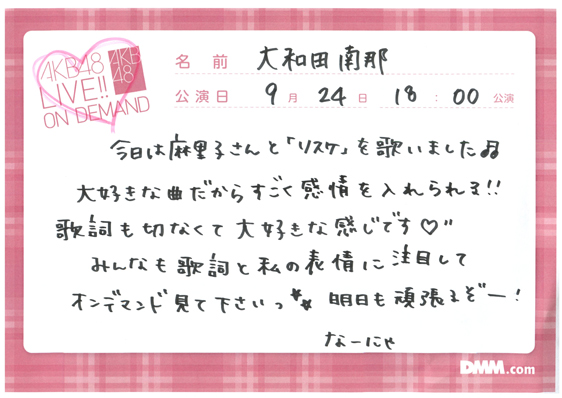 AKB48
LIVE!!
ON DEMAND
AKB
48
名前 大和田南那
公演日 9月24日 18:00公演
今日は麻里子さんと「リスケ」を歌いました♫
大好きな曲だからすごく感情を入れられる!!
歌詞も切なくて大好きな感じです♡"
みんなも歌詞と私の表情に注目して
オンデマンド見て下さいっ** 明日も頑張るぞー!
なーにゃ
DMM.com